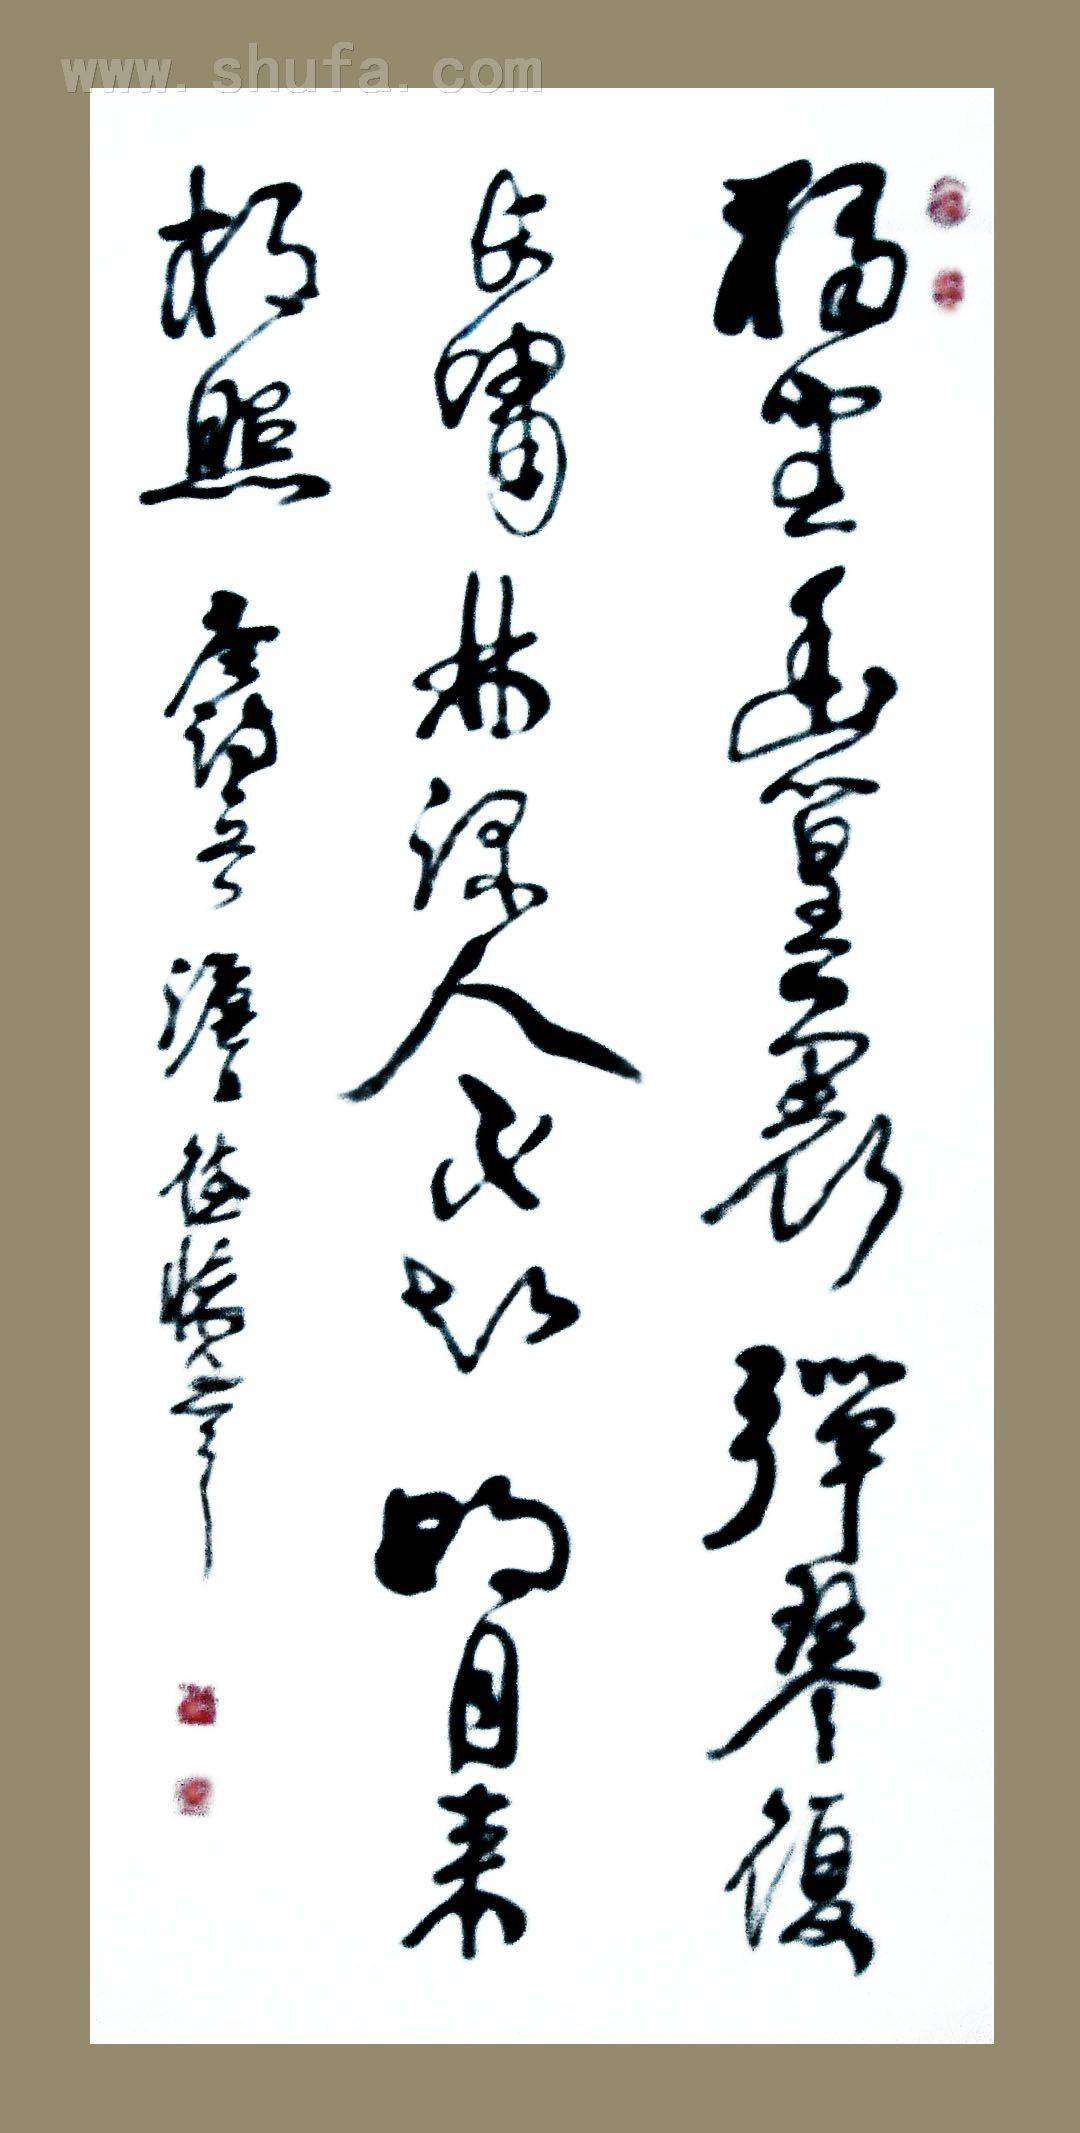 www.shufa.com
獨坐幽篁裏彈琴復
長嘯林深人不知明月来
相照 唐詩